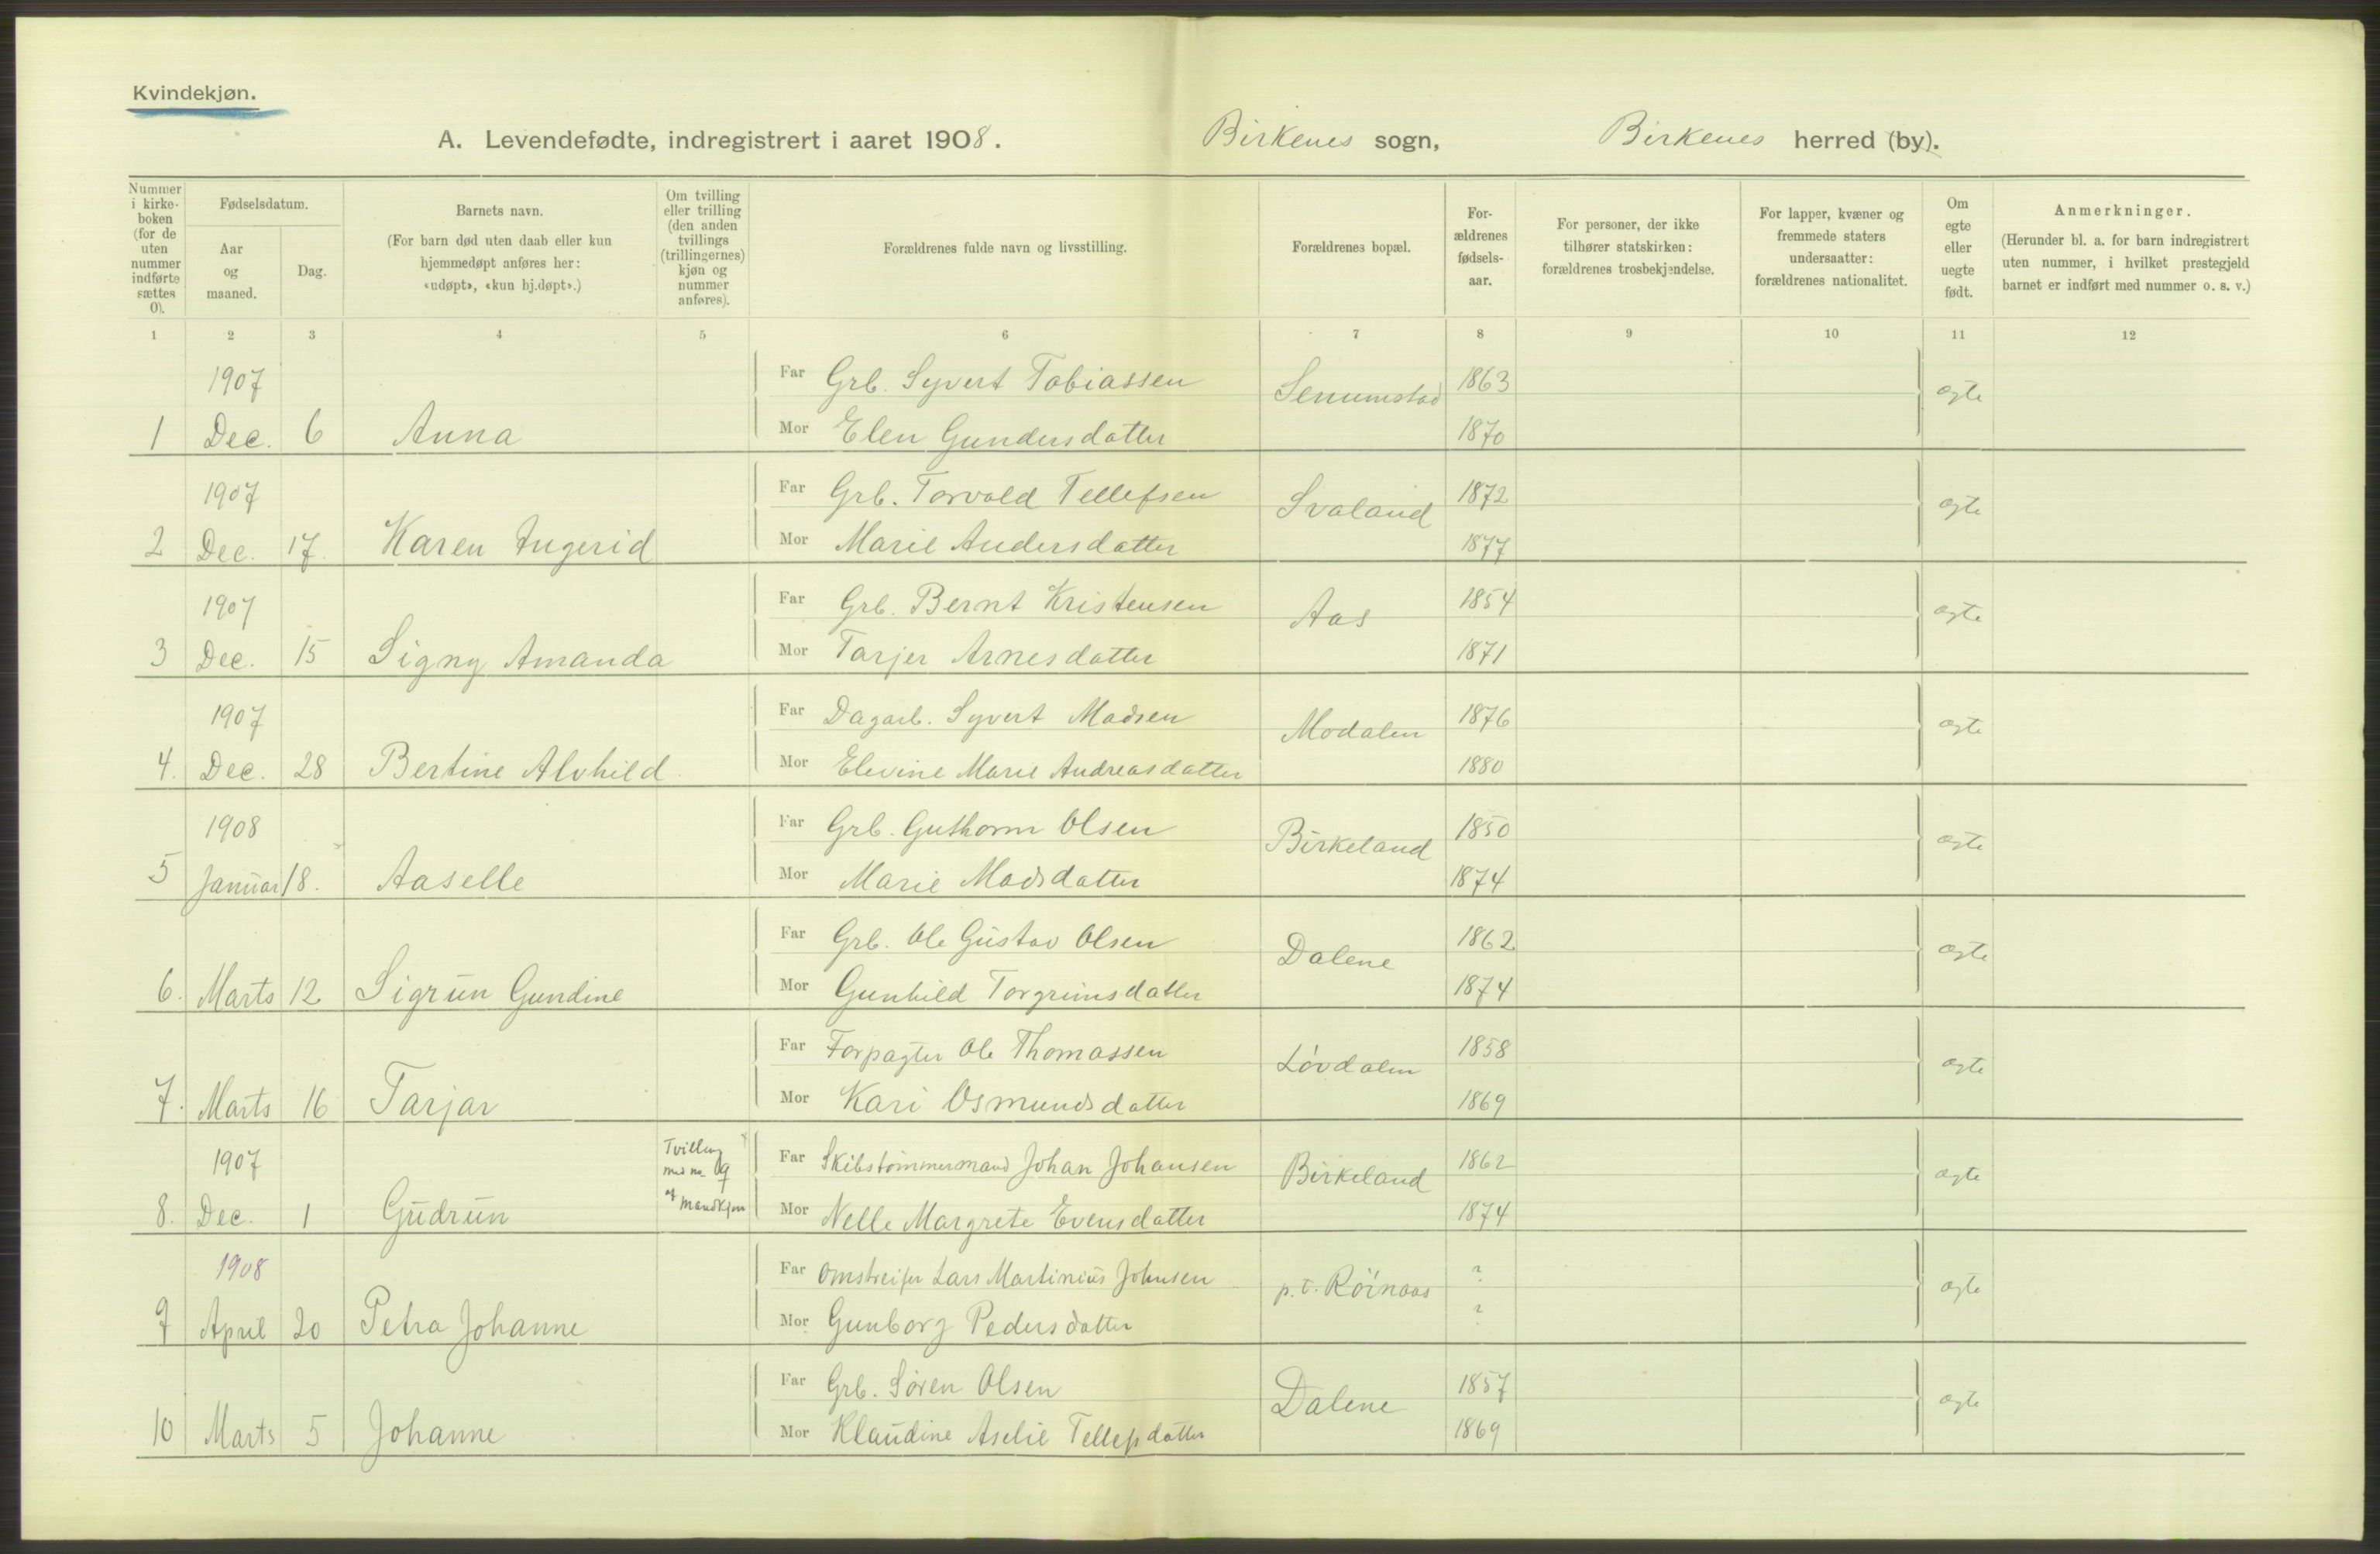 Kvindekjøn.
A. Levendefødte, indregistrert i aaret 1908. Birkenes sogn, Birkenes herred (by).
Nummer i kirke-boken (for de uten nummer indførte sættes 0).
Fødselsdatum.
Aar og maaned.
Dag.
Barnets navn.
(For barn død uten daab eller kun hjemmedøpt anføres her: «udøpt», «kun hj.døpt».)
Om tvilling eller trilling (den anden tvillings (trillingernes) kjøn og nummer anføres).
Forældrenes fulde navn og livsstilling.
Forældrenes bopæl.
For-ældrenes fødsels-aar.
For personer, der ikke tilhører statskirken: forældrenes trosbekjendelse.
For lapper, kvæner og fremmede staters undersaatter: forældrenes nationalitet.
Om egte eller uegte født.
Anmerkninger.
(Herunder bl. a. for barn indregistrert uten nummer, i hvilket prestegjeld barnet er indført med nummer o. s. v.)
1 2 3 4 5 6 7 8 9 10 11 12
1907 Far Grb. Syvert Tobiassen Senumstad 1863 ægte
1 Dec. 6 Anna Mor Elen Gundersdatter 1870
1907 Far Grb. Torvald Tellefsen Svaland 1872 ægte
2 Dec. 17. Karen Ingerid Mor Marie Andersdatter 1877
1907 Far Grb. Bernt Kristensen Aas 1854 ægte
3 Dec. 15 Signy Amanda Mor Tarjer Arnesdatter 1871
1907 Far Dagarb. Syvert Madsen Modalen 1876 ægte
4. Dec. 28 Bertine Alvhild Mor Elevine Marie Andreasdatter 1880
1908 Far Grb. Guthorm Olsen Birkeland 1850 ægte
5 Januar 18. Aaselle Mor Marie Madsdatter 1874
Far Grb. Ole Gustav Olsen Dalene 1862 ægte
6. Marts 12 Sigrun Gundine Mor Gunhild Torgrimsdatter 1874
Far Forpagter Ole Thomassen Lövdalen 1858 ægte
7. Marts 16 Tarjar Mor Kari Osmundsdatter 1869
1907 Tvilling med no 9 Far Skibstømmermand Johan Johansen Birkeland 1862 ægte
8. Dec. 1 Gudrun af mandkjøn Mor Nelle Margrete Evensdatter 1874
1908 Far Omstreifer Lars Martinius Johnsen p.t. Röinaas ? ægte
9 April 20 Petra Johanne Mor Gunborg Pedersdatter ?
Far Grb. Søren Olsen Dalene 1857 ægte
10 Marts 5 Johanne Mor Klaudine Aselie Tellefsdatter 1869